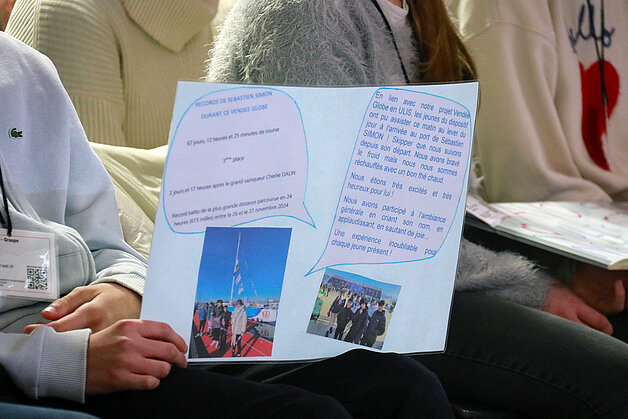 RECORDS DE SEBASTIEN SIMON
DURANT CE VENDEE GLOBE
67 jours, 12 heures et 25 minutes de course
3ème place
2 jours et 17 heures après le grand vainqueur Charlie DALIN
Record battu de la plus grande distance parcourue en 24
heures (615 milles) entre le 26 et le 27 novembre 2024
En lien avec notre projet Vendée
Globe en ULIS, les jeunes du dispositif
ont pu assister ce matin au lever du
jour à l'arrivée au port de Sébastien
SIMON ! Skipper que nous suivons
depuis son départ. Nous avons bravé
le froid mais nous nous sommes
réchauffés avec un bon thé chaud.
Nous étions très excités et très
heureux pour lui !
Nous avons participé à l'ambiance
générale en criant son nom, en
applaudissant, en sautant de joie...
Une expérience inoubliable pour
chaque jeune présent !